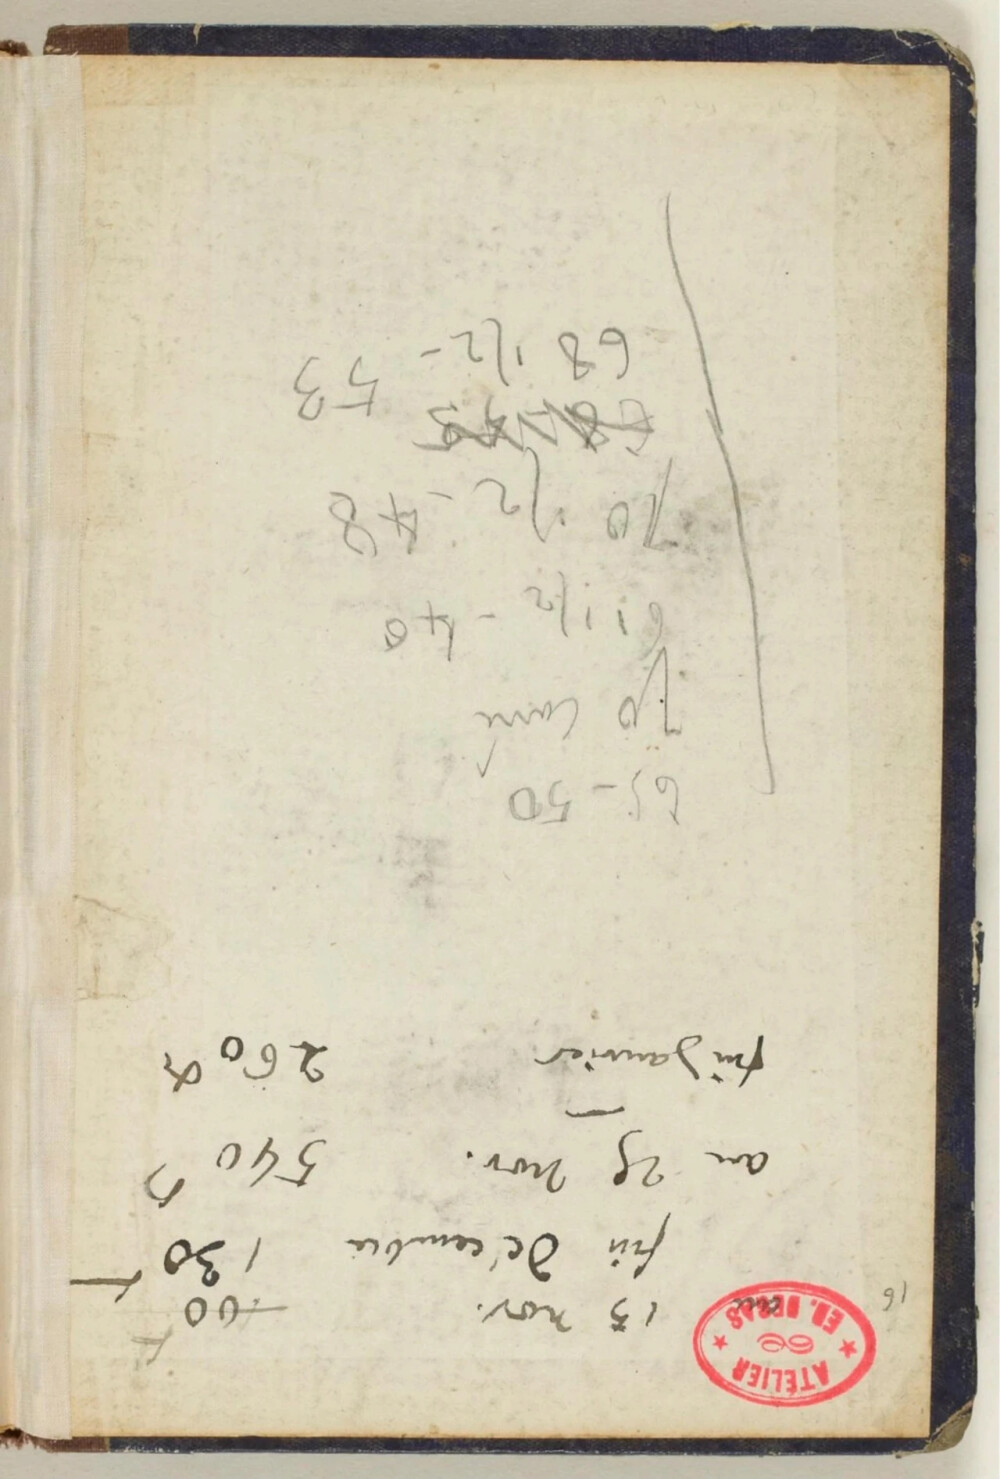 ATELIER ED. DEGAS
16
au 15 nov. 100 f
fin Décembre 130 f
au 29 nov. 540 f
fin Janvier 260 f
65 - 50
70 carré
61 1/2 - 40
70 1/2 - 48
68 1/2 - 53